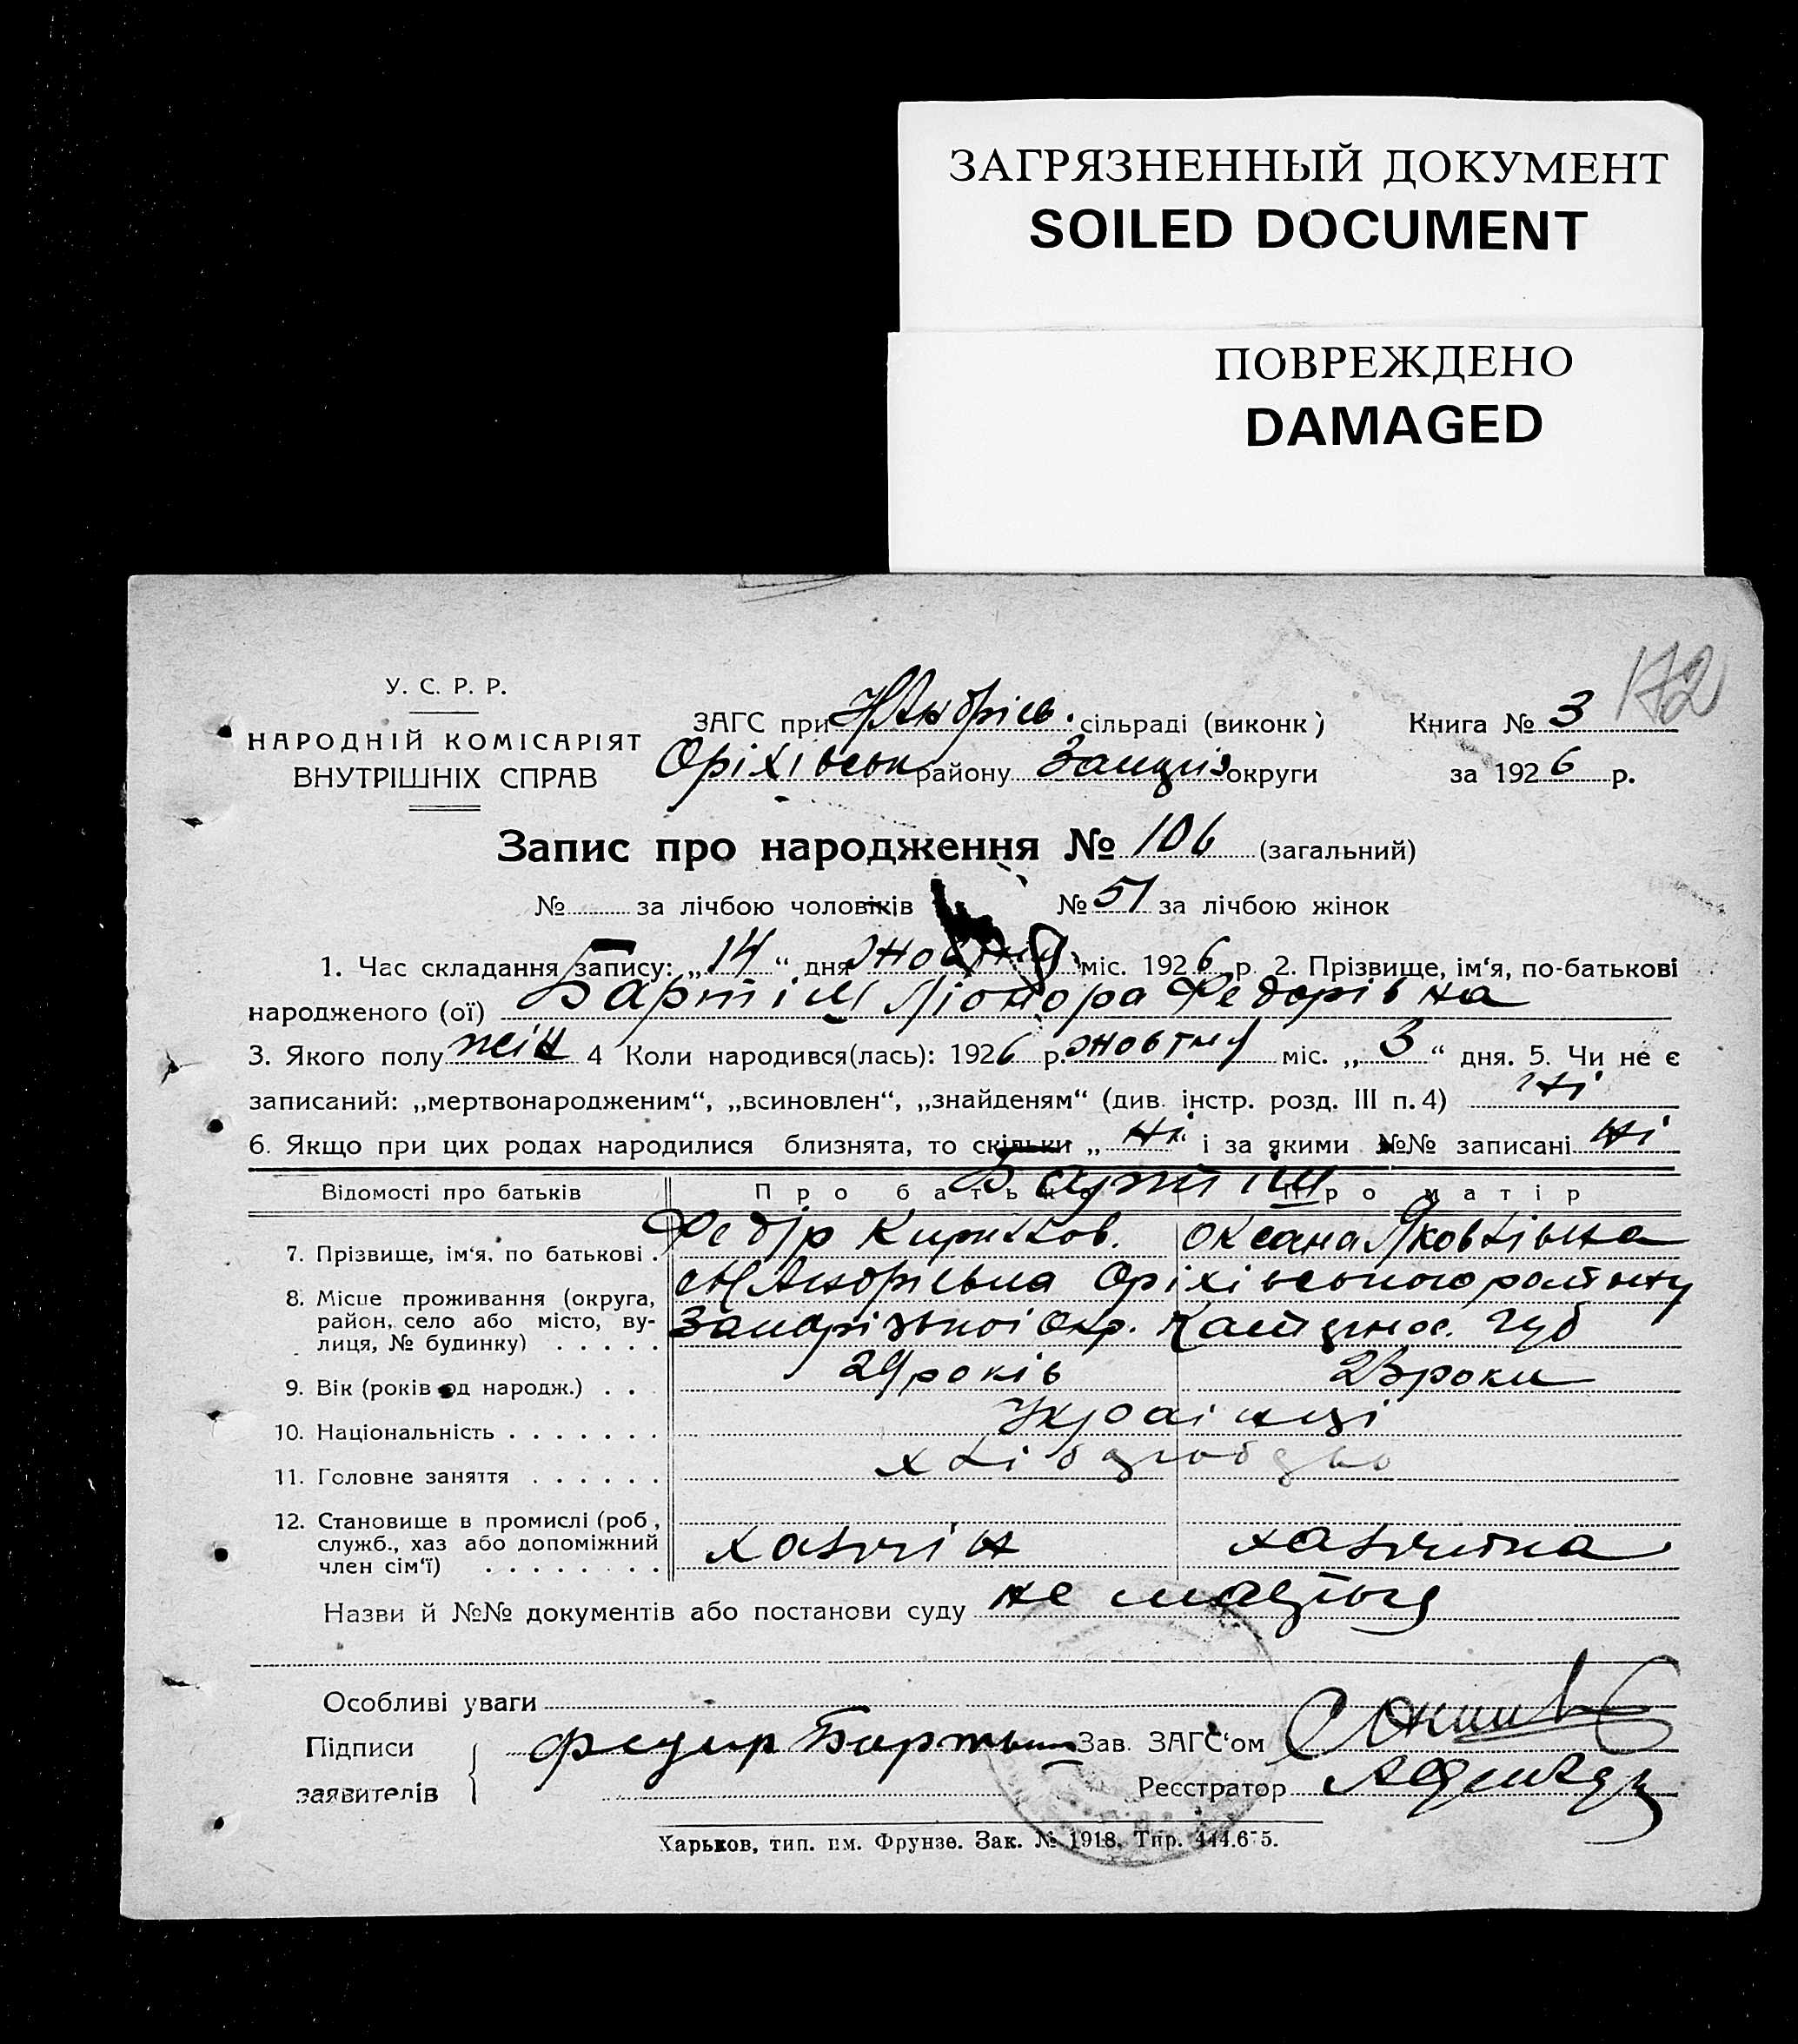 ЗАГРЯЗНЕННЫЙ ДОКУМЕНТ
SOILED DOCUMENT
ПОВРЕЖДЕНО
DAMAGED
172
У. С. Р. Р.
НАРОДНІЙ КОМІСАРІЯТ
ВНУТРІШНІХ СПРАВ
ЗАГС при Н Андрієв. сільраді (виконк) Книга № 3
Оріхівськ району округи за 1926 р.
Запис про народження № 106 (загальний)
№ за лічбою чоловіків № 51 за лічбою жінок
1. Час складання запису: „14“ дня жовтня міс. 1926 р. 2. Прізвище, ім‘я, по-батькові
народженого (ої) Бартіш Ліонора Федорівна
3. Якого полу жін 4 Коли народився(лась): 1926 р. жовтня міс. „3“ дня. 5. Чи не є
записаний: „мертвонародженим“, „всиновлен“, „знайденям“ (див. інстр. розд. III п. 4) Ні
6. Якщо при цих родах народилися близнята, то скільки „ні“ і за якими №№ записані ні
Відомості про батьків Про батька Про матір
Бартіш
7. Прізвище, ім‘я, по батькові . Федір Кирилов. Оксана Яковлівна
8. Місце проживання (округа, район, село або місто, вулиця, № будинку) . . . . .
Н Андріївка Оріхівського району
Запорізької Окр. Катеринос. Губ
9. Вік (років од народж.) . . 29 років 23 роки
10. Національність . . . . . . . Українці
11. Головне заняття . . . . . . хлібороб
12. Становище в промислі (роб., служб., хаз або допоміжний член сім‘ї) . . . . . . . .
хазяїн хазяйка
Назви й №№ документів або постанови суду не мається
Особливі уваги
Підписи Федир Бартыш Зав. ЗАГС‘ом
заявителів Реєстратор
Харьков, тип. им. Фрунзе. Зак. № 1918. Тир. 444.675.